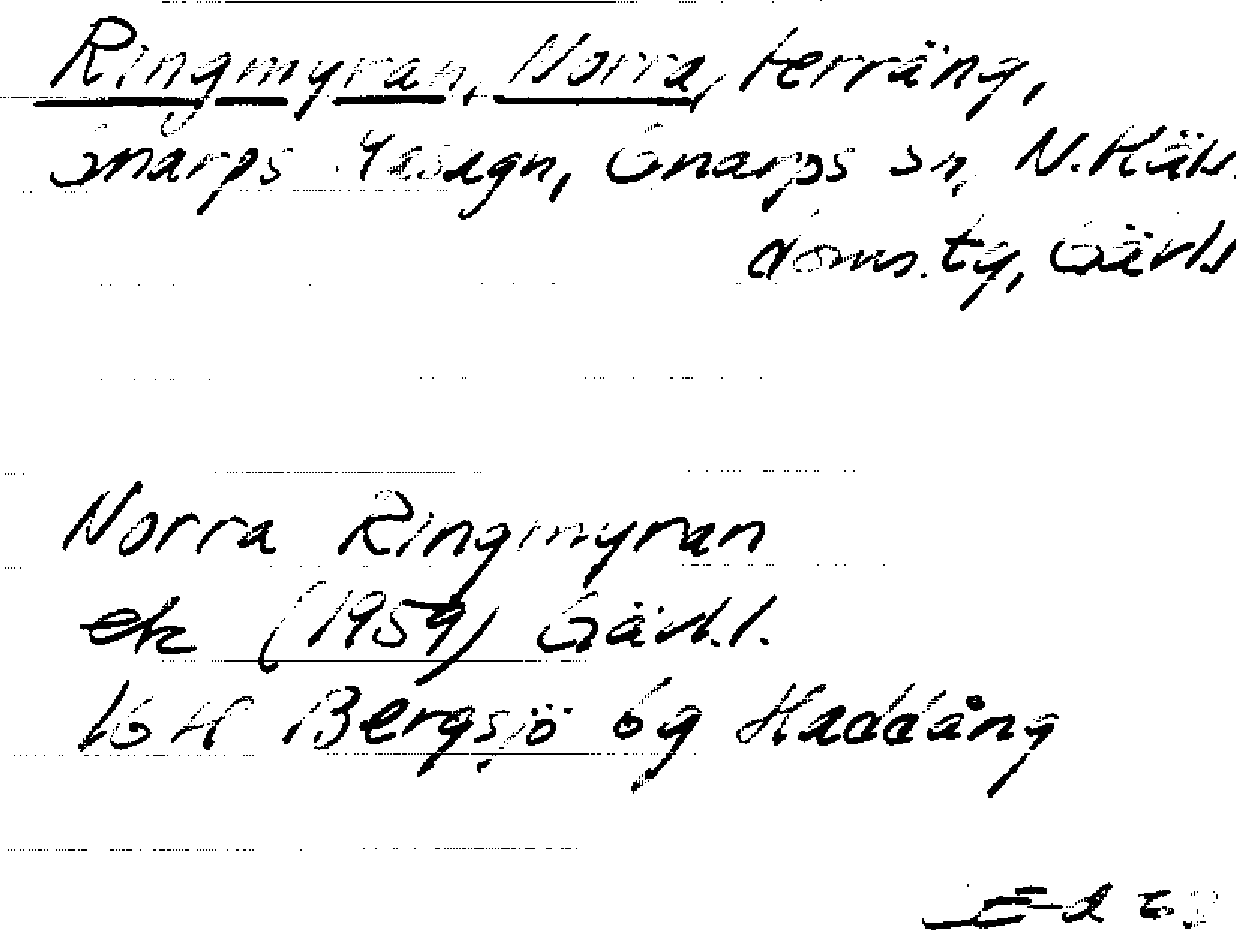 Ringmyran, Norra, terräng,
Gnarps Masugn, Gnarps sn, N. Häls.
doms. tg, Gävls
Norra Ringmyran
ek (1959) Gävl.l.
16H Bergsjö 6g Haddång